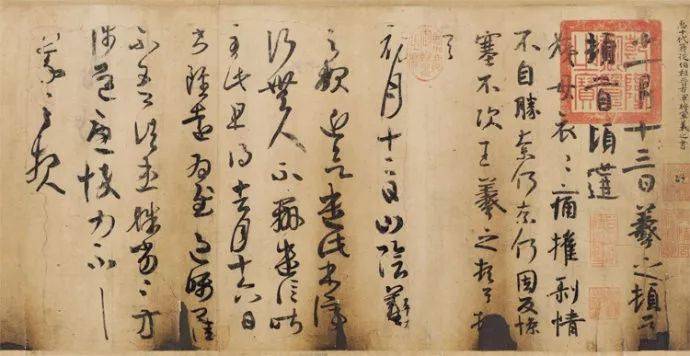 臣十代再從伯祖晉右軍將軍羲之書
十一月十三日羲之頓首
頓首頃遘
姨母哀〻痛摧剝情
不自勝奈何奈何因反慘
塞不次王羲之頓首頓
首
初月十二日山陰羲
之報近欲遣此書停
行無人不辦遣信昨
至此且得去月十六日
書雖遠為慰過囑卿
佳不吾諸患殊劣〻方
涉道憂悴力不一一
羲之報